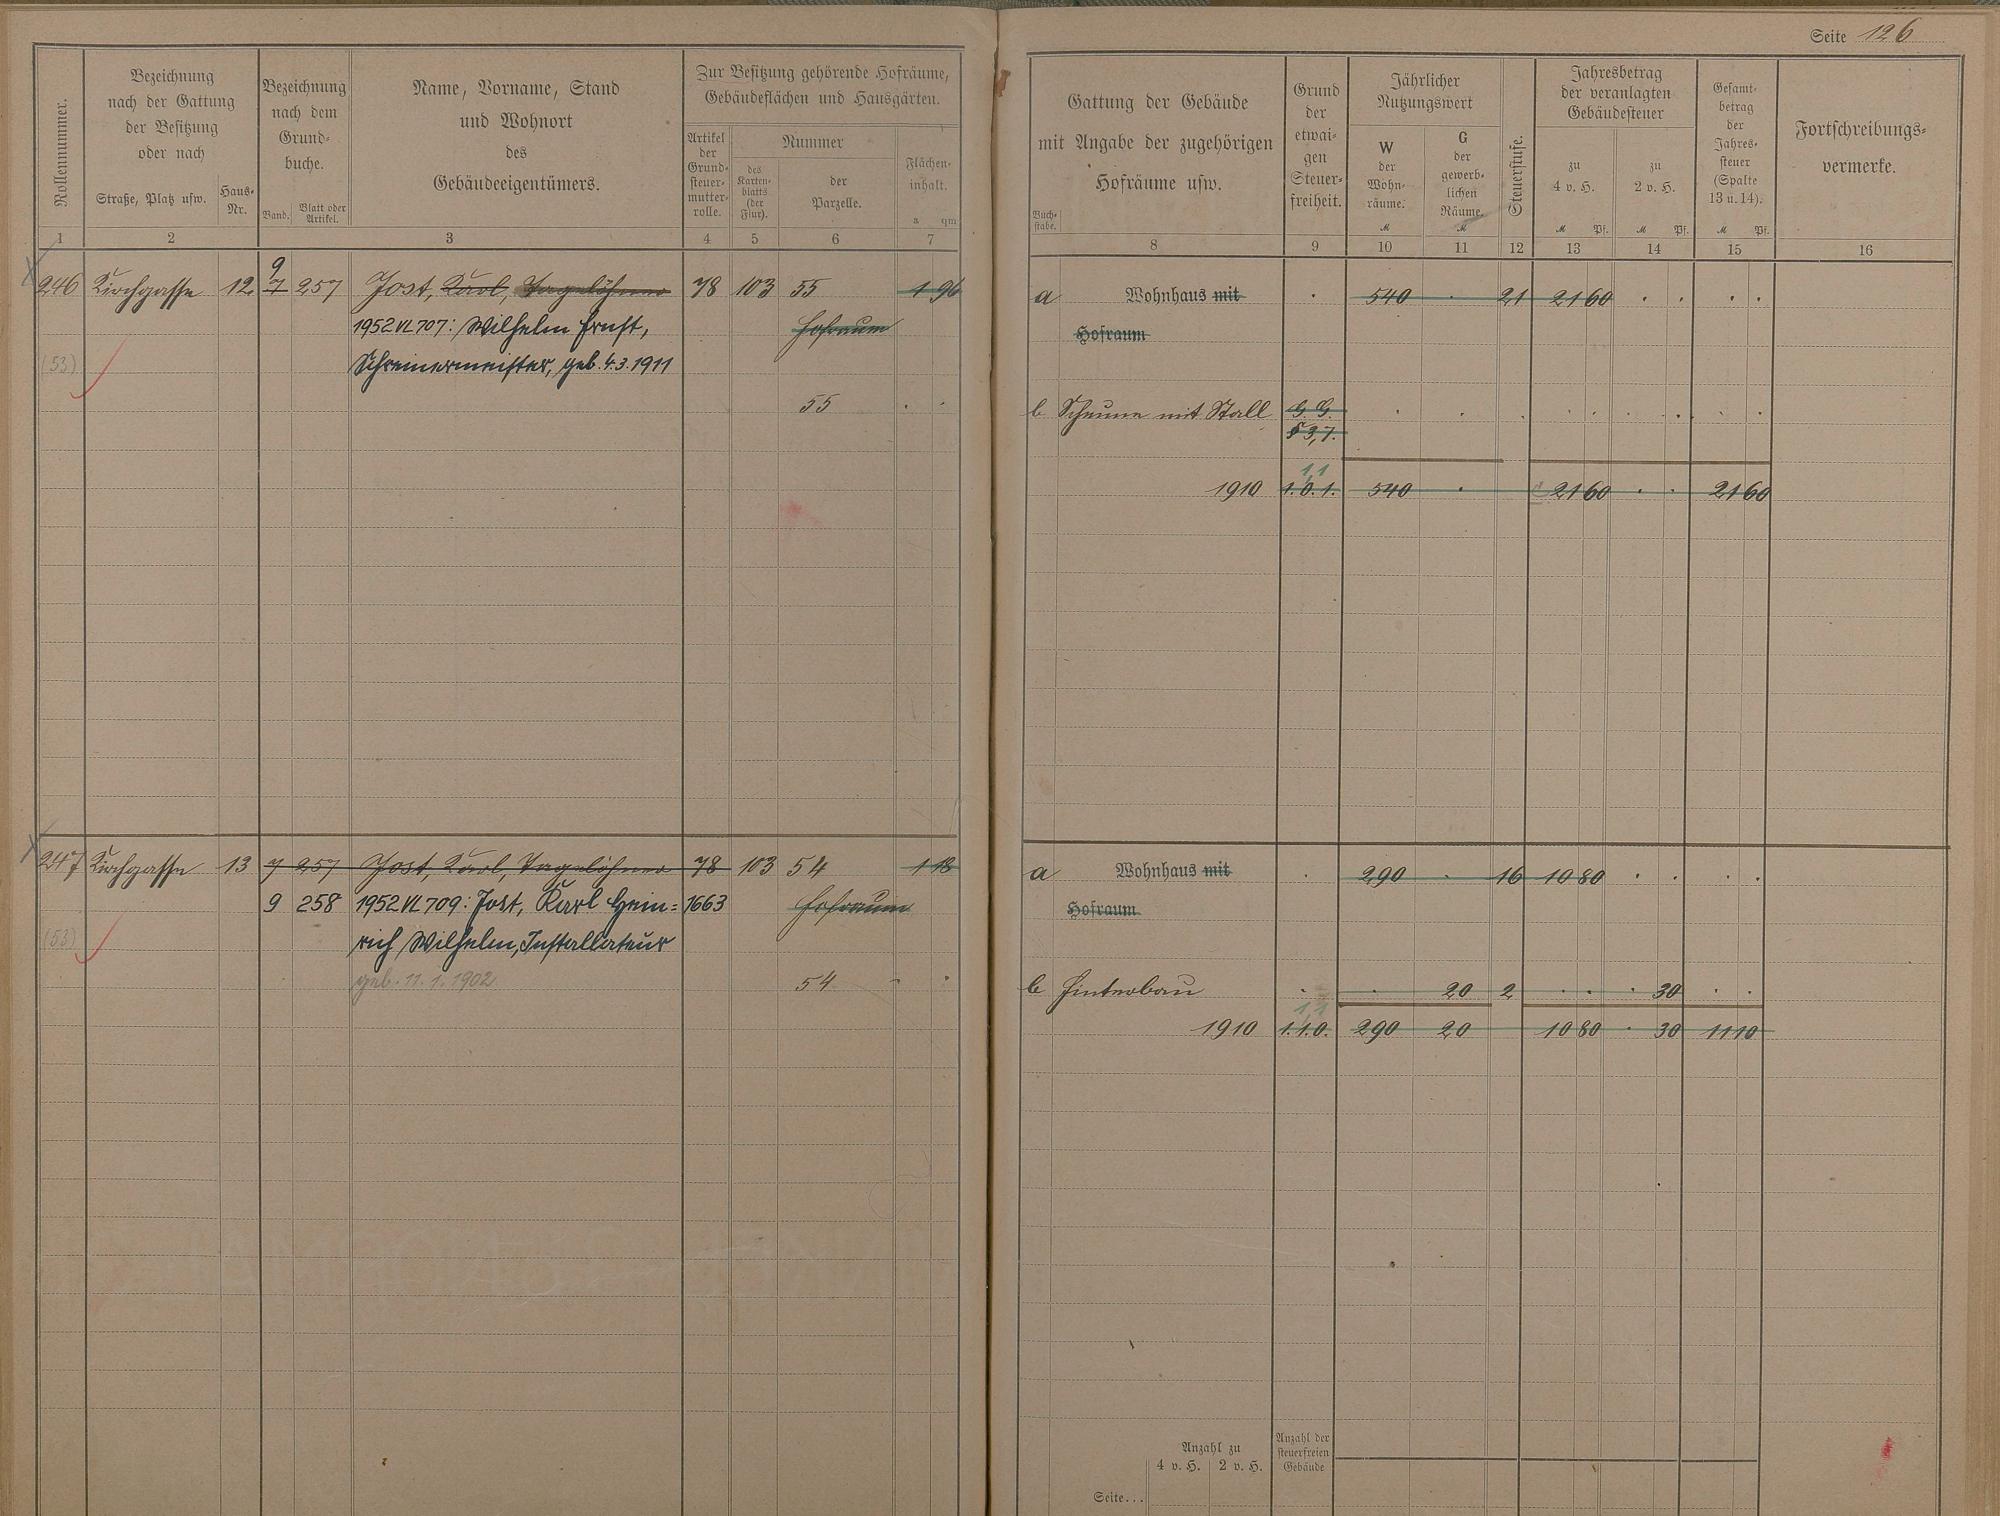 Seite 126
Rollennummer.
Bezeichnung
nach der Gattung
der Besitzung
oder nach
Straße, Platz usw.
Haus-
Nr.
Bezeichnung
nach dem
Grund-
buche.
Band.
Blatt oder
Artikel.
Name, Vorname, Stand
und Wohnort
des
Gebäudeeigentümers.
Zur Besitzung gehörende Hofräume,
Gebäudeflächen und Hausgärten.
Artikel
der
Grund-
steuer-
mutter-
rolle.
Nummer
des
Karten-
blatts
(der
Flur).
der
Parzelle.
Flächen-
inhalt.
a qm
1 2 3 4 5 6 7
246 Kirchgasse 12 7 257 Jost, Karl, Tagelöhner 78 103 55 1 96
9
1952 VL 707: Wilhelm Ernst, Hofraum
(53) Schreinermeister, geb. 4.3.1911
55 . .
247 Kirchgasse 13 7 257 Jost, Karl, Tagelöhner 78 103 54 1 18
9 258 1952 VL 709: Jost, Karl Hein= 1663 Hofraum
(53) rich Wilhelm, Installateur
geb. 11. 1. 1902 54
Gattung der Gebäude
mit Angabe der zugehörigen
Hofräume usw.
Buch-
stabe.
Grund
der
etwai-
gen
Steuer-
freiheit.
Jährlicher
Nutzungswert
W
der
Wohn-
räume.
M
G
der
gewerb-
lichen
Räume.
M
Steuerstufe.
Jahresbetrag
der veranlagten
Gebäudesteuer
zu
4 v. H.
M Pf.
zu
2 v. H.
M Pf.
Gesamt-
betrag
der
Jahres-
steuer
(Spalte
13 u. 14).
M Pf.
Fortschreibungs-
vermerke.
8 9 10 11 12 13 14 15 16
a Wohnhaus mit . 540 . 21 21 60 . . . .
Hofraum
b Scheune mit Stall G. G. . . . . . . . . .
§ 3,7.
1,1
1910 1.0.1. 540 . 21 60 . . 21 60
a Wohnhaus mit . 290 . 16 10 80 . . . .
Hofraum
b Hinterbau . . 20 2 . . . 30 . .
1,1
1910 1.1.0. 290 20 10 80 . 30 11 10
Anzahl zu
4 v. H. 2 v. H.
Anzahl der
steuerfreien
Gebäude
Seite...